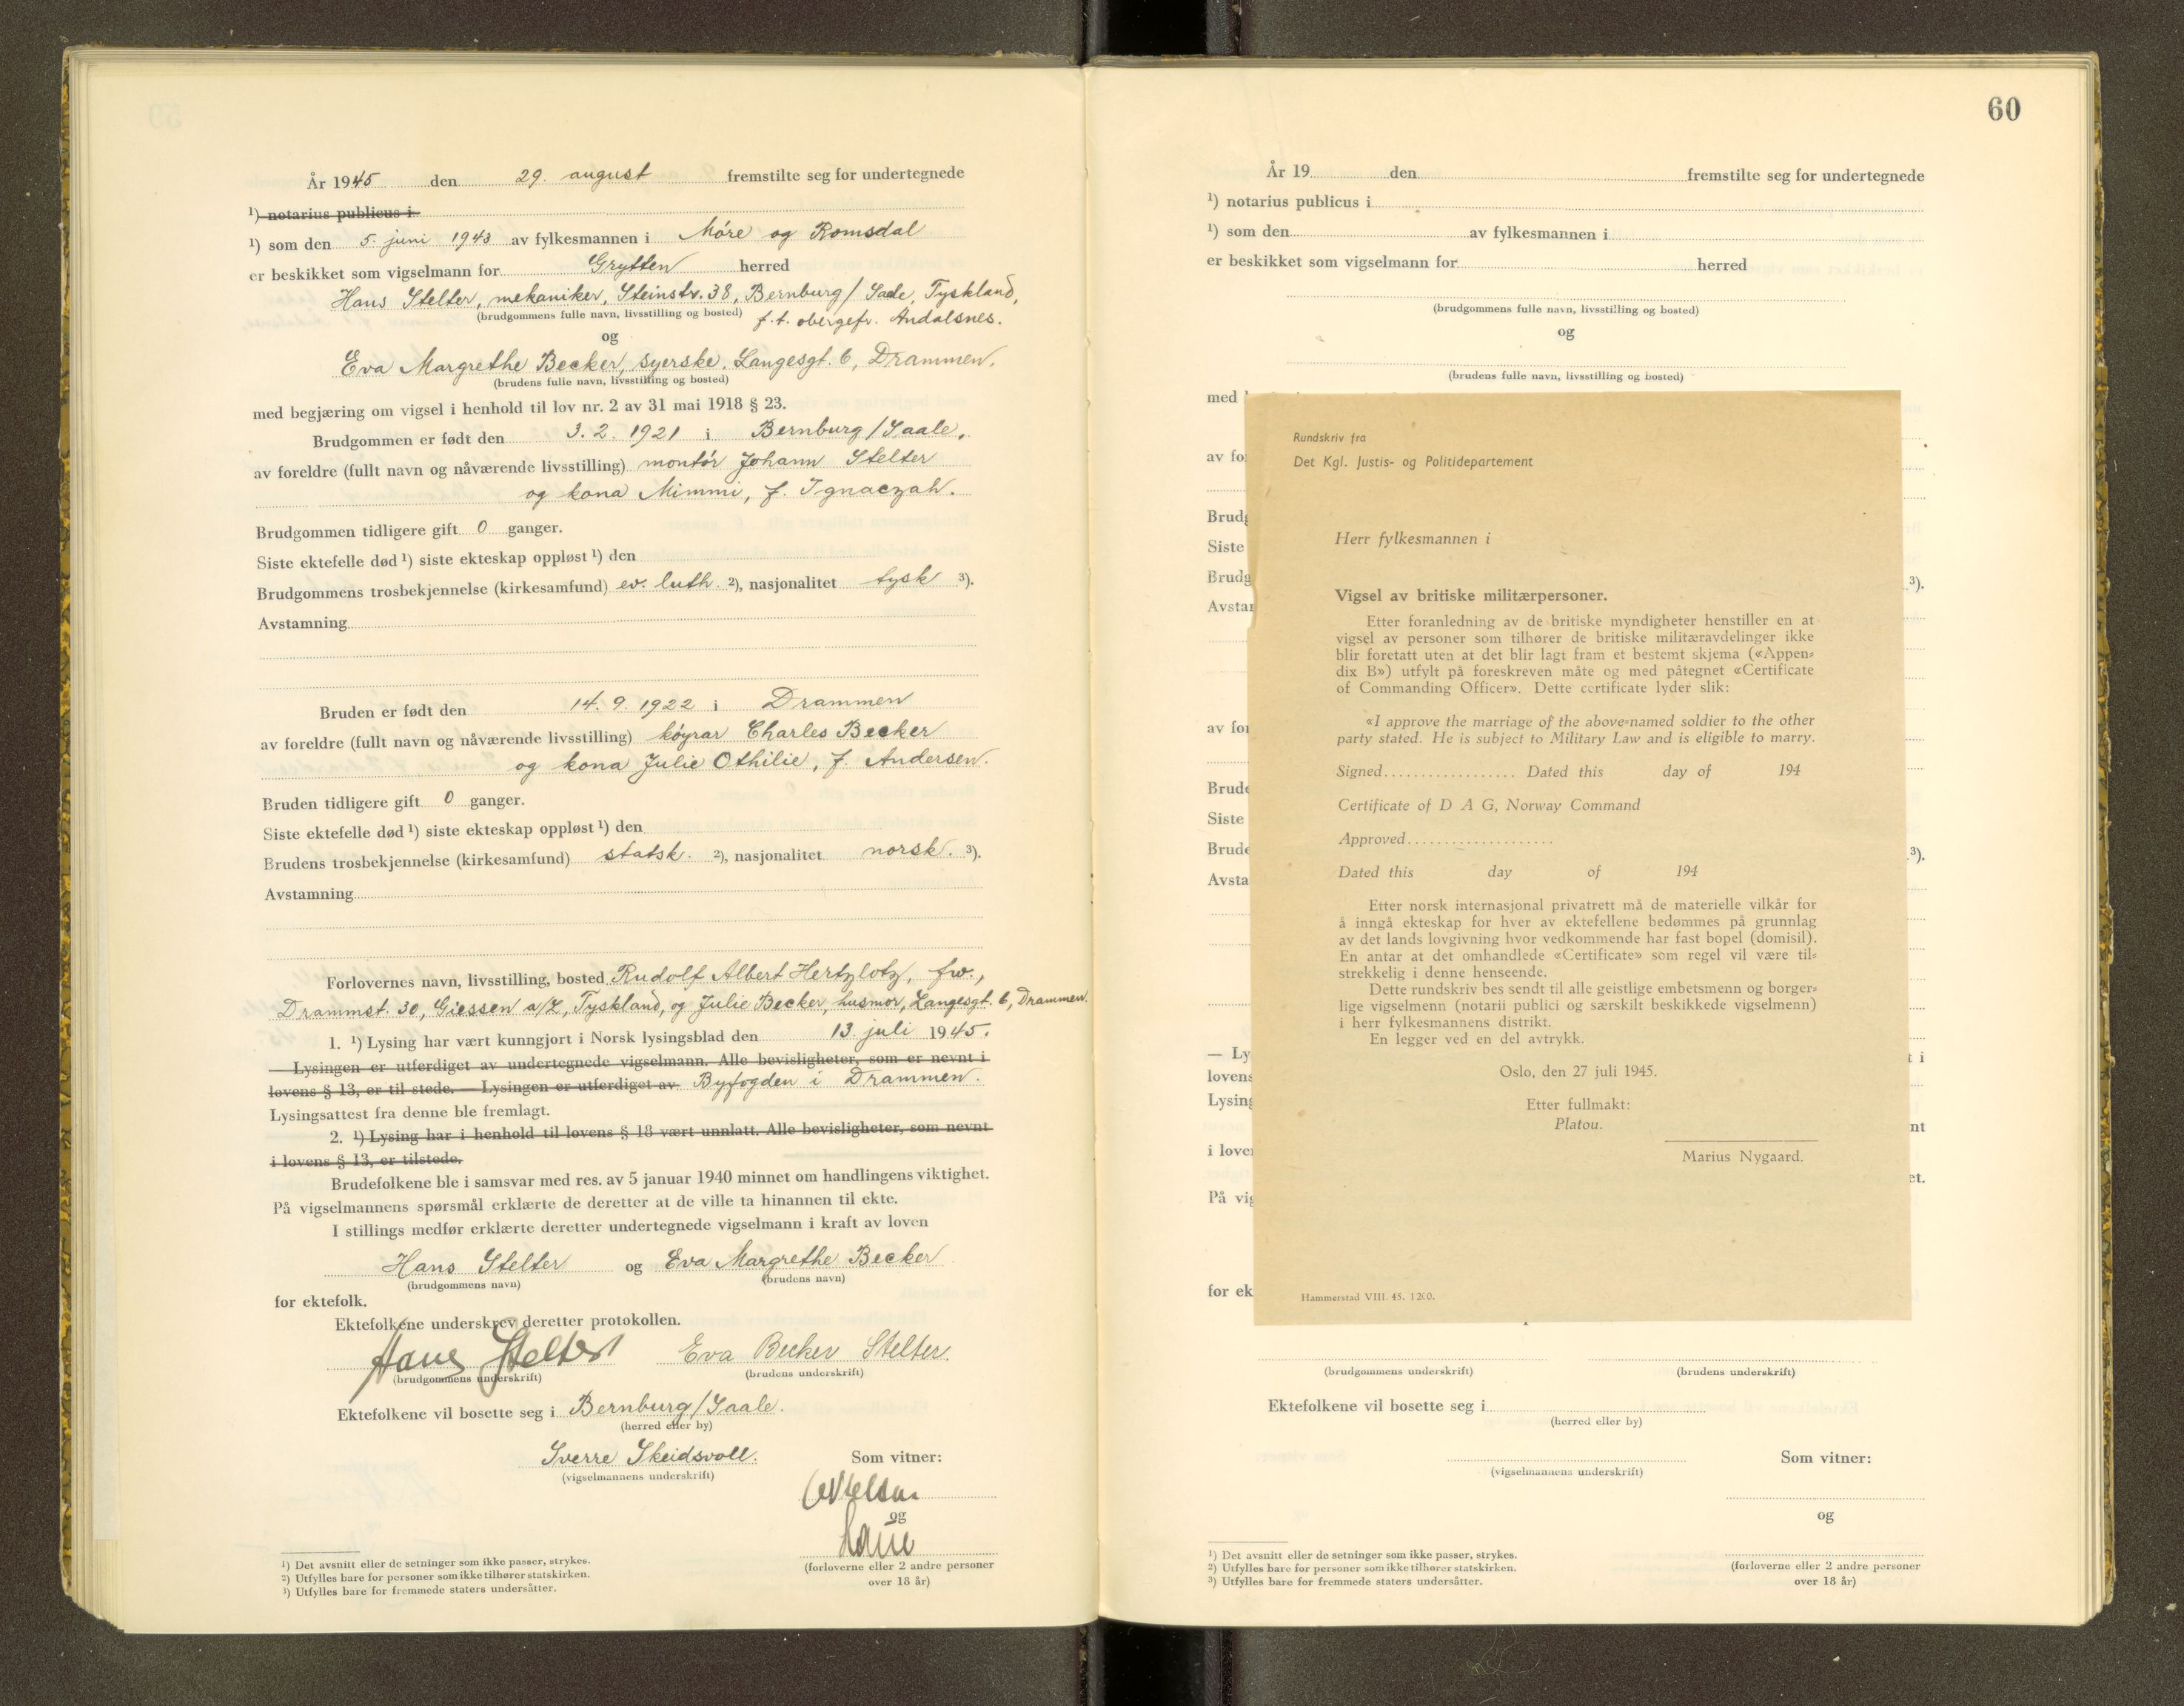 År 1945 den 29. august fremstilte seg for undertegnede
¹) notarius publicus i
¹) som den 5. juni 1943 av fylkesmannen i Møre og Romsdal
er beskikket som vigselmann for Grytten herred
Hans Stelter, mekaniker, Steinstr. 38, Bernburg/Saale, Tyskland,
(brudgommens fulle navn, livsstilling og bosted) f.t. obergefr. Åndalsnes.
og
Eva Margrethe Becker, syerske, Langesgt. 6, Drammen.
(brudens fulle navn, livsstilling og bosted)
med begjæring om vigsel i henhold til lov nr. 2 av 31 mai 1918 § 23.
Brudgommen er født den 3. 2. 1921 i Bernburg/Saale,
av foreldre (fullt navn og nåværende livsstilling) montør Johann Stelter
og kona Mimmi, f. Ignaczah.
Brudgommen tidligere gift 0 ganger.
Siste ektefelle død ¹) siste ekteskap oppløst ¹) den
Brudgommens trosbekjennelse (kirkesamfund) ev. luth. ²), nasjonalitet tysk ³).
Avstamning
Bruden er født den 14. 9. 1922 i Drammen
av foreldre (fullt navn og nåværende livsstilling) køyrar Charles Becker
og kona Julie Othilie, f. Andersen.
Bruden tidligere gift 0 ganger.
Siste ektefelle død ¹) siste ekteskap oppløst ¹) den
Brudens trosbekjennelse (kirkesamfund) statsk. ²), nasjonalitet norsk. ³).
Avstamning
Forlovernes navn, livsstilling, bosted Rudolf Albert Hertzlotz, fw.,
Drammst. 30, Giessen a/L, Tyskland, og Julie Becker, husmor, Langesgt. 6, Drammen.
1. ¹) Lysing har vært kunngjort i Norsk lysingsblad den 13. juli 1945.
— Lysingen er utferdiget av undertegnede vigselmann. Alle bevisligheter, som er nevnt i
lovens § 13, er til stede. — Lysingen er utferdiget av Byfogden i Drammen.
Lysingsattest fra denne ble fremlagt.
2. ¹) Lysing har i henhold til lovens § 18 vært unnlatt. Alle bevisligheter, som nevnt
i lovens § 13, er tilstede.
Brudefolkene ble i samsvar med res. av 5 januar 1940 minnet om handlingens viktighet.
På vigselmannens spørsmål erklærte de deretter at de ville ta hinannen til ekte.
I stillings medfør erklærte deretter undertegnede vigselmann i kraft av loven
Hans Stelter og Eva Margrethe Becker
(brudgommens navn) (brudens navn)
for ektefolk.
Ektefolkene underskrev deretter protokollen.
Hans Stelter Eva Becker Stelter.
(brudgommens underskrift) (brudens underskrift)
Ektefolkene vil bosette seg i Bernburg/Saale.
(herred eller by)
Sverre Skeidsvoll. Som vitner:
(vigselmannens underskrift)
og
(forloverne eller 2 andre personer
over 18 år)
¹) Det avsnitt eller de setninger som ikke passer, strykes.
²) Utfylles bare for personer som ikke tilhører statskirken.
³) Utfylles bare for fremmede staters undersåtter.
60
År 19 den fremstilte seg for undertegnede
¹) notarius publicus i
¹) som den av fylkesmannen i
er beskikket som vigselmann for herred
(brudgommens fulle navn, livsstilling og bosted)
og
(brudens fulle navn, livsstilling og bosted)
med
av fo
Brudg
Siste
Brudg ³).
Avstar
av for
Brude
Siste
Brude ³).
Avsta
— Ly t i
lovens
Lysing
nt
i love
et.
På vig
for ek
Rundskriv fra
Det Kgl. Justis- og Politidepartement
Herr fylkesmannen i
Vigsel av britiske militærpersoner.
Etter foranledning av de britiske myndigheter henstiller en at
vigsel av personer som tilhører de britiske militæravdelinger ikke
blir foretatt uten at det blir lagt fram et bestemt skjema («Appen-
dix B») utfylt på foreskreven måte og med påtegnet «Certificate
of Commanding Officer». Dette certificate lyder slik:
«I approve the marriage of the above-named soldier to the other
party stated. He is subject to Military Law and is eligible to marry.
Signed.................. Dated this day of 194
Certificate of D A G, Norway Command
Approved....................
Dated this day of 194
Etter norsk internasjonal privatrett må de materielle vilkår for
å inngå ekteskap for hver av ektefellene bedømmes på grunnlag
av det lands lovgivning hvor vedkommende har fast bopel (domisil).
En antar at det omhandlede «Certificate» som regel vil være til-
strekkelig i denne henseende.
Dette rundskriv bes sendt til alle geistlige embetsmenn og borger-
lige vigselmenn (notarii publici og særskilt beskikkede vigselmenn)
i herr fylkesmannens distrikt.
En legger ved en del avtrykk.
Oslo, den 27 juli 1945.
Etter fullmakt:
Platou.
Marius Nygaard.
Hammerstad VIII. 45. 1200.
(brudgommens underskrift) (brudens underskrift)
Ektefolkene vil bosette seg i
(herred eller by)
Som vitner:
(vigselmannens underskrift)
og
(forloverne eller 2 andre personer
over 18 år)
¹) Det avsnitt eller de setninger som ikke passer, strykes.
²) Utfylles bare for personer som ikke tilhører statskirken.
³) Utfylles bare for fremmede staters undersåtter.